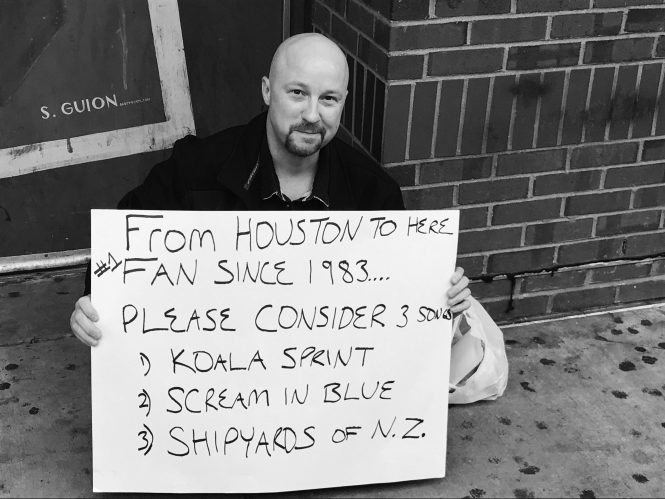 S. GUION
From HOUSTON TO HERE
#1 FAN SINCE 1983....
PLEASE CONSIDER 3 SONGS
1) KOALA SPRINT
2) SCREAM IN BLUE
3) SHIPYARDS OF N.Z.